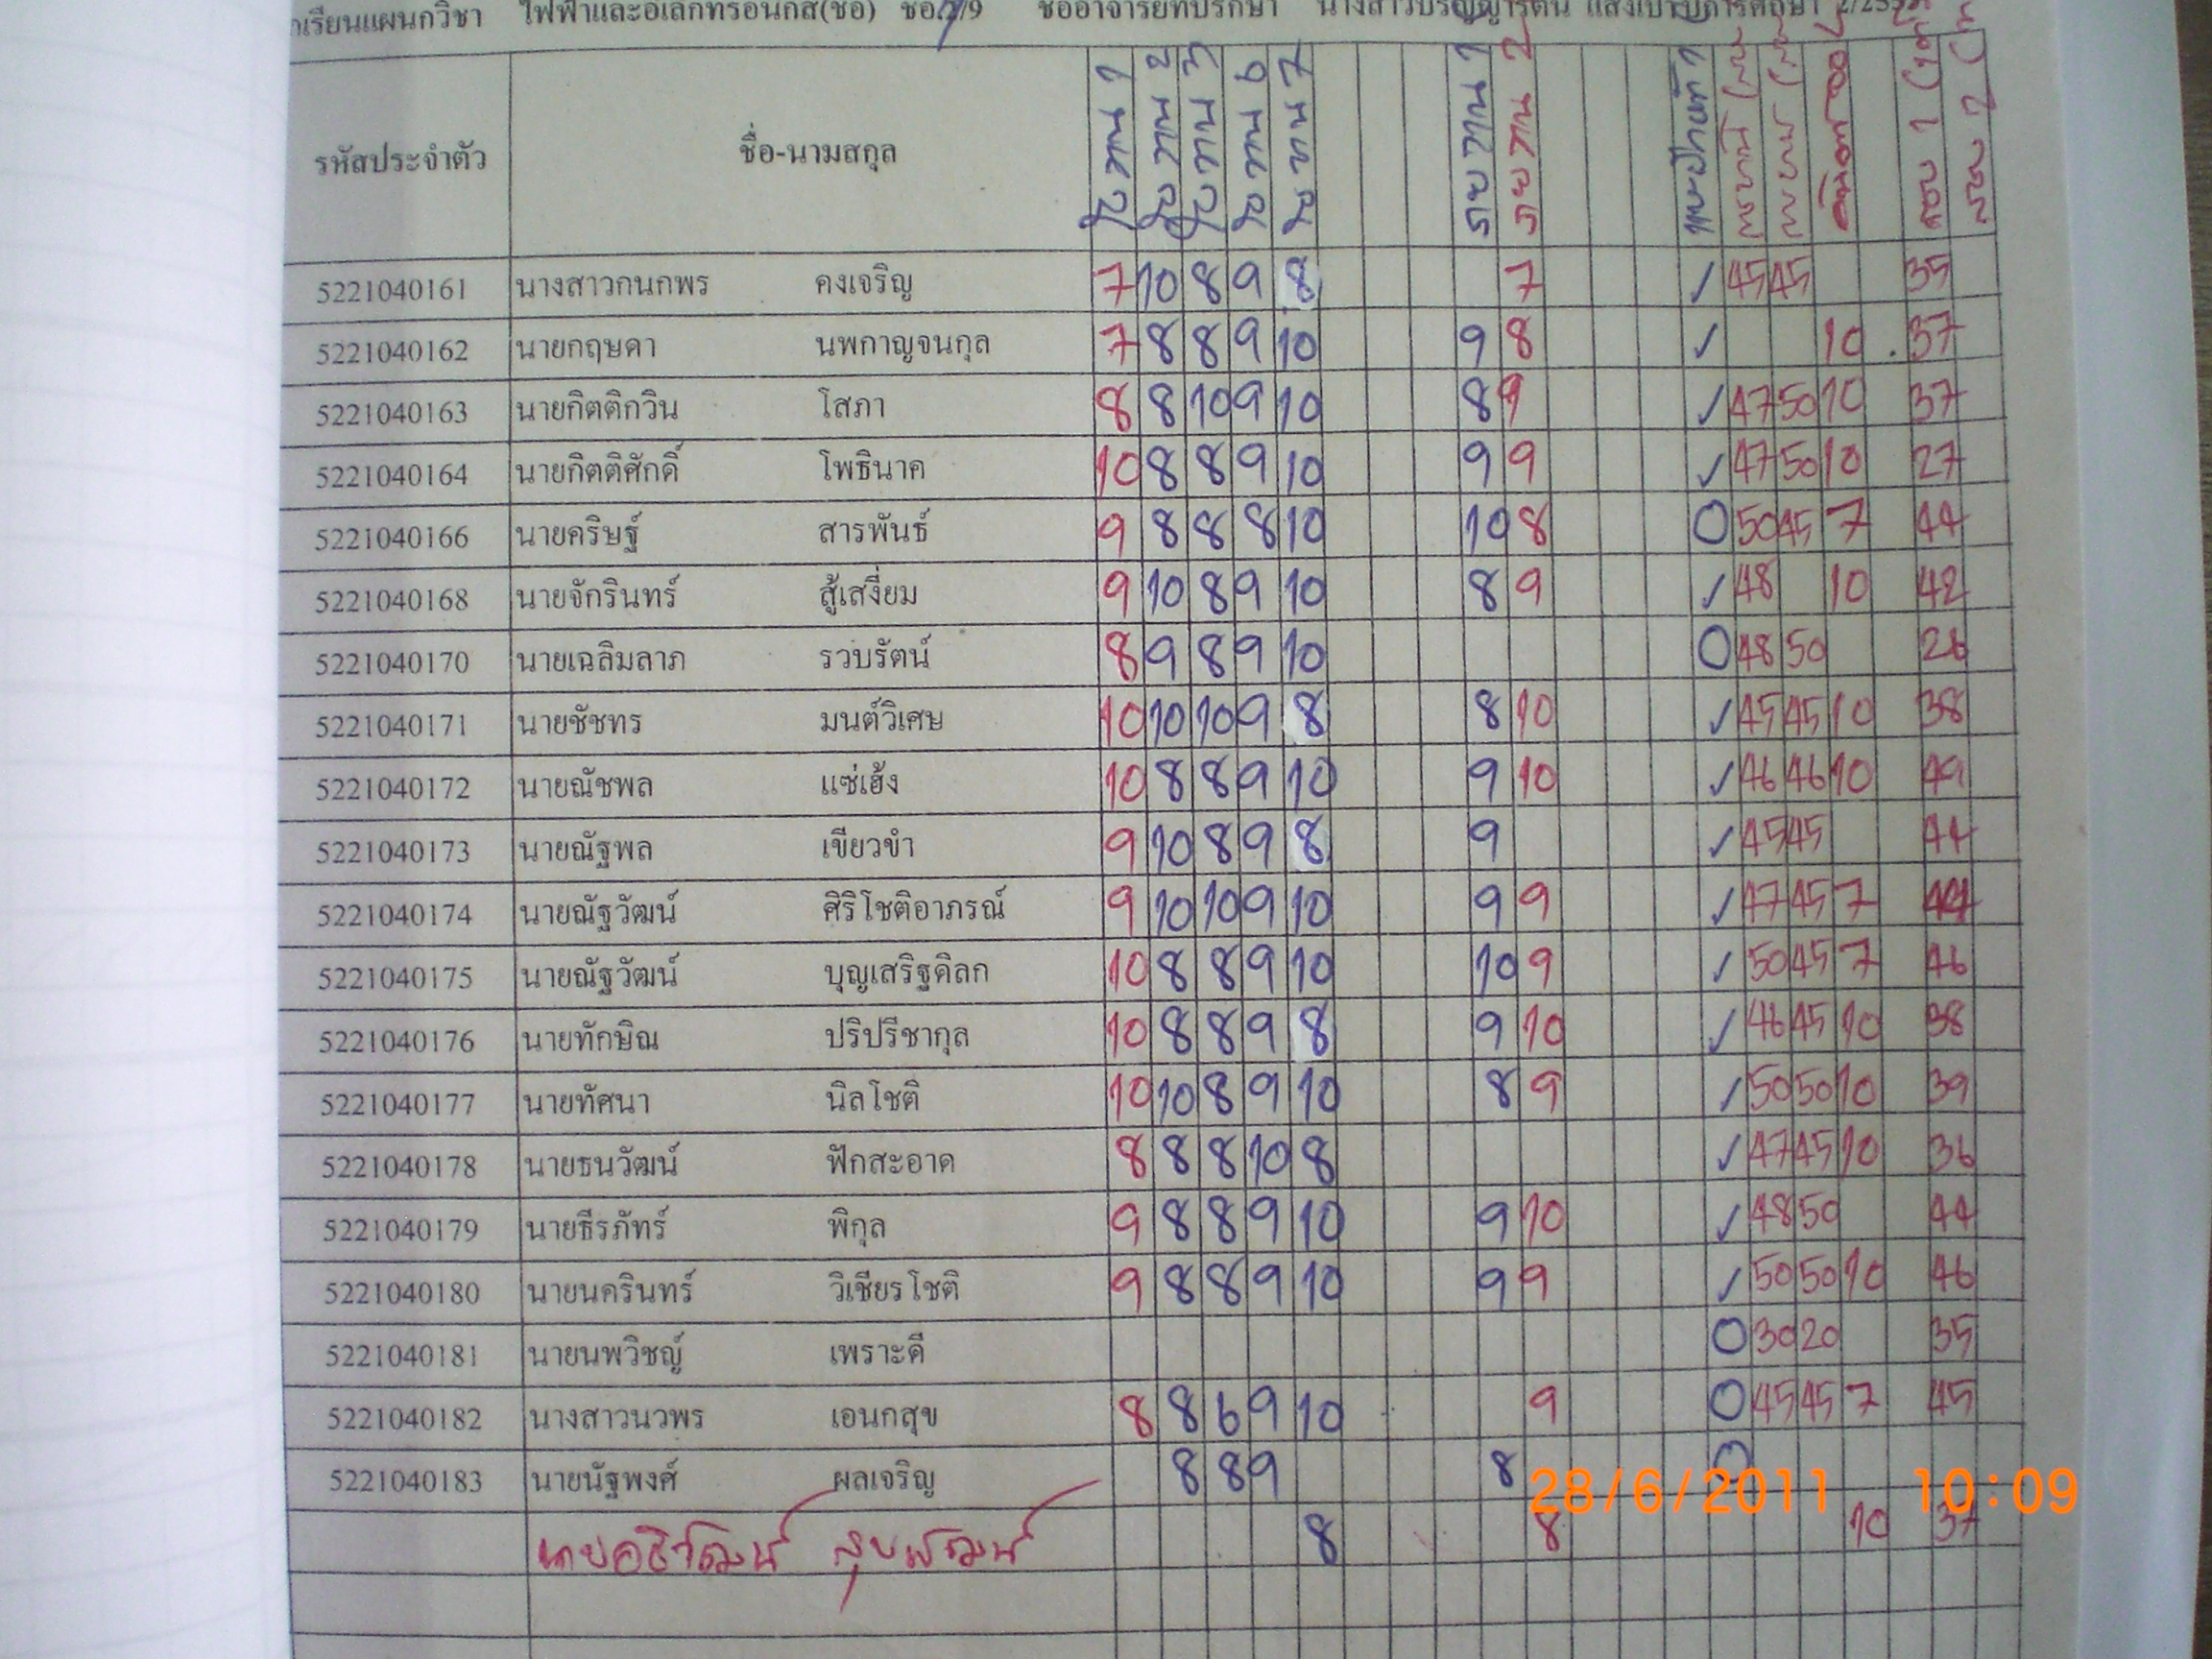 ไฟฟ้าและอิเล็กทรอนิกส์(ชอ) ชอ. /9 ชื่ออาจารย์ที่ปรึกษา
รหัสประจำตัว ชื่อ-นามสกุล ใบงาน 1 ใบงาน 2 ใบงาน 3 ใบงาน 6 ใบงาน 7
5221040161 นางสาวกนกพร คงเจริญ 7 10 8 9 8 7 ✓ 45 45 35
5221040162 นายกฤษดา นพกาญจนกุล 7 8 8 9 10 9 8 ✓ 10 . 37
5221040163 นายกิตติกวิน โสภา 8 8 10 9 10 8 9 ✓ 47 50 10 37
5221040164 นายกิตติศักดิ์ โพธินาค 10 8 8 9 10 9 9 ✓ 47 50 10 27
5221040166 นายคริษฐ์ สารพันธ์ 9 8 8 8 10 10 8 0 50 45 7 44
5221040168 นายจักรินทร์ สู้เสงี่ยม 9 10 8 9 10 8 9 ✓ 48 10 42
5221040170 นายเฉลิมลาภ รวบรัตน์ 8 9 8 9 10 0 48 50 26
5221040171 นายชัชทร มนต์วิเศษ 10 10 10 9 8 8 10 ✓ 45 45 10 38
5221040172 นายณัชพล แซ่เฮ้ง 10 8 8 9 10 9 10 ✓ 46 46 10 49
5221040173 นายณัฐพล เขียวขำ 9 10 8 9 8 9 ✓ 45 45 44
5221040174 นายณัฐวัฒน์ ศิริโชติอาภรณ์ 9 10 10 9 10 9 9 ✓ 47 45 7
5221040175 นายณัฐวัฒน์ บุญเสริฐดิลก 10 8 8 9 10 10 9 ✓ 50 45 7 46
5221040176 นายทักษิณ ปริปรีชากุล 10 8 8 9 8 9 10 ✓ 46 45 10 38
5221040177 นายทัศนา นิลโชติ 10 10 8 9 10 8 9 ✓ 50 50 10 39
5221040178 นายธนวัฒน์ ฟักสะอาด 8 8 8 10 8 ✓ 47 45 10 36
5221040179 นายธีรภัทร์ พิกุล 9 8 8 9 10 9 10 ✓ 48 50 44
5221040180 นายนครินทร์ วิเชียรโชติ 9 8 8 9 10 9 9 ✓ 50 50 10 46
5221040181 นายนพวิชญ์ เพราะดี 0 30 20 35
5221040182 นางสาวนวพร เอนกสุข 8 8 6 9 10 9 0 45 45 7 45
5221040183 นายนัฐพงศ์ ผลเจริญ 8 8 9 8 0
28/6/2011 10:09
8 8 10 37